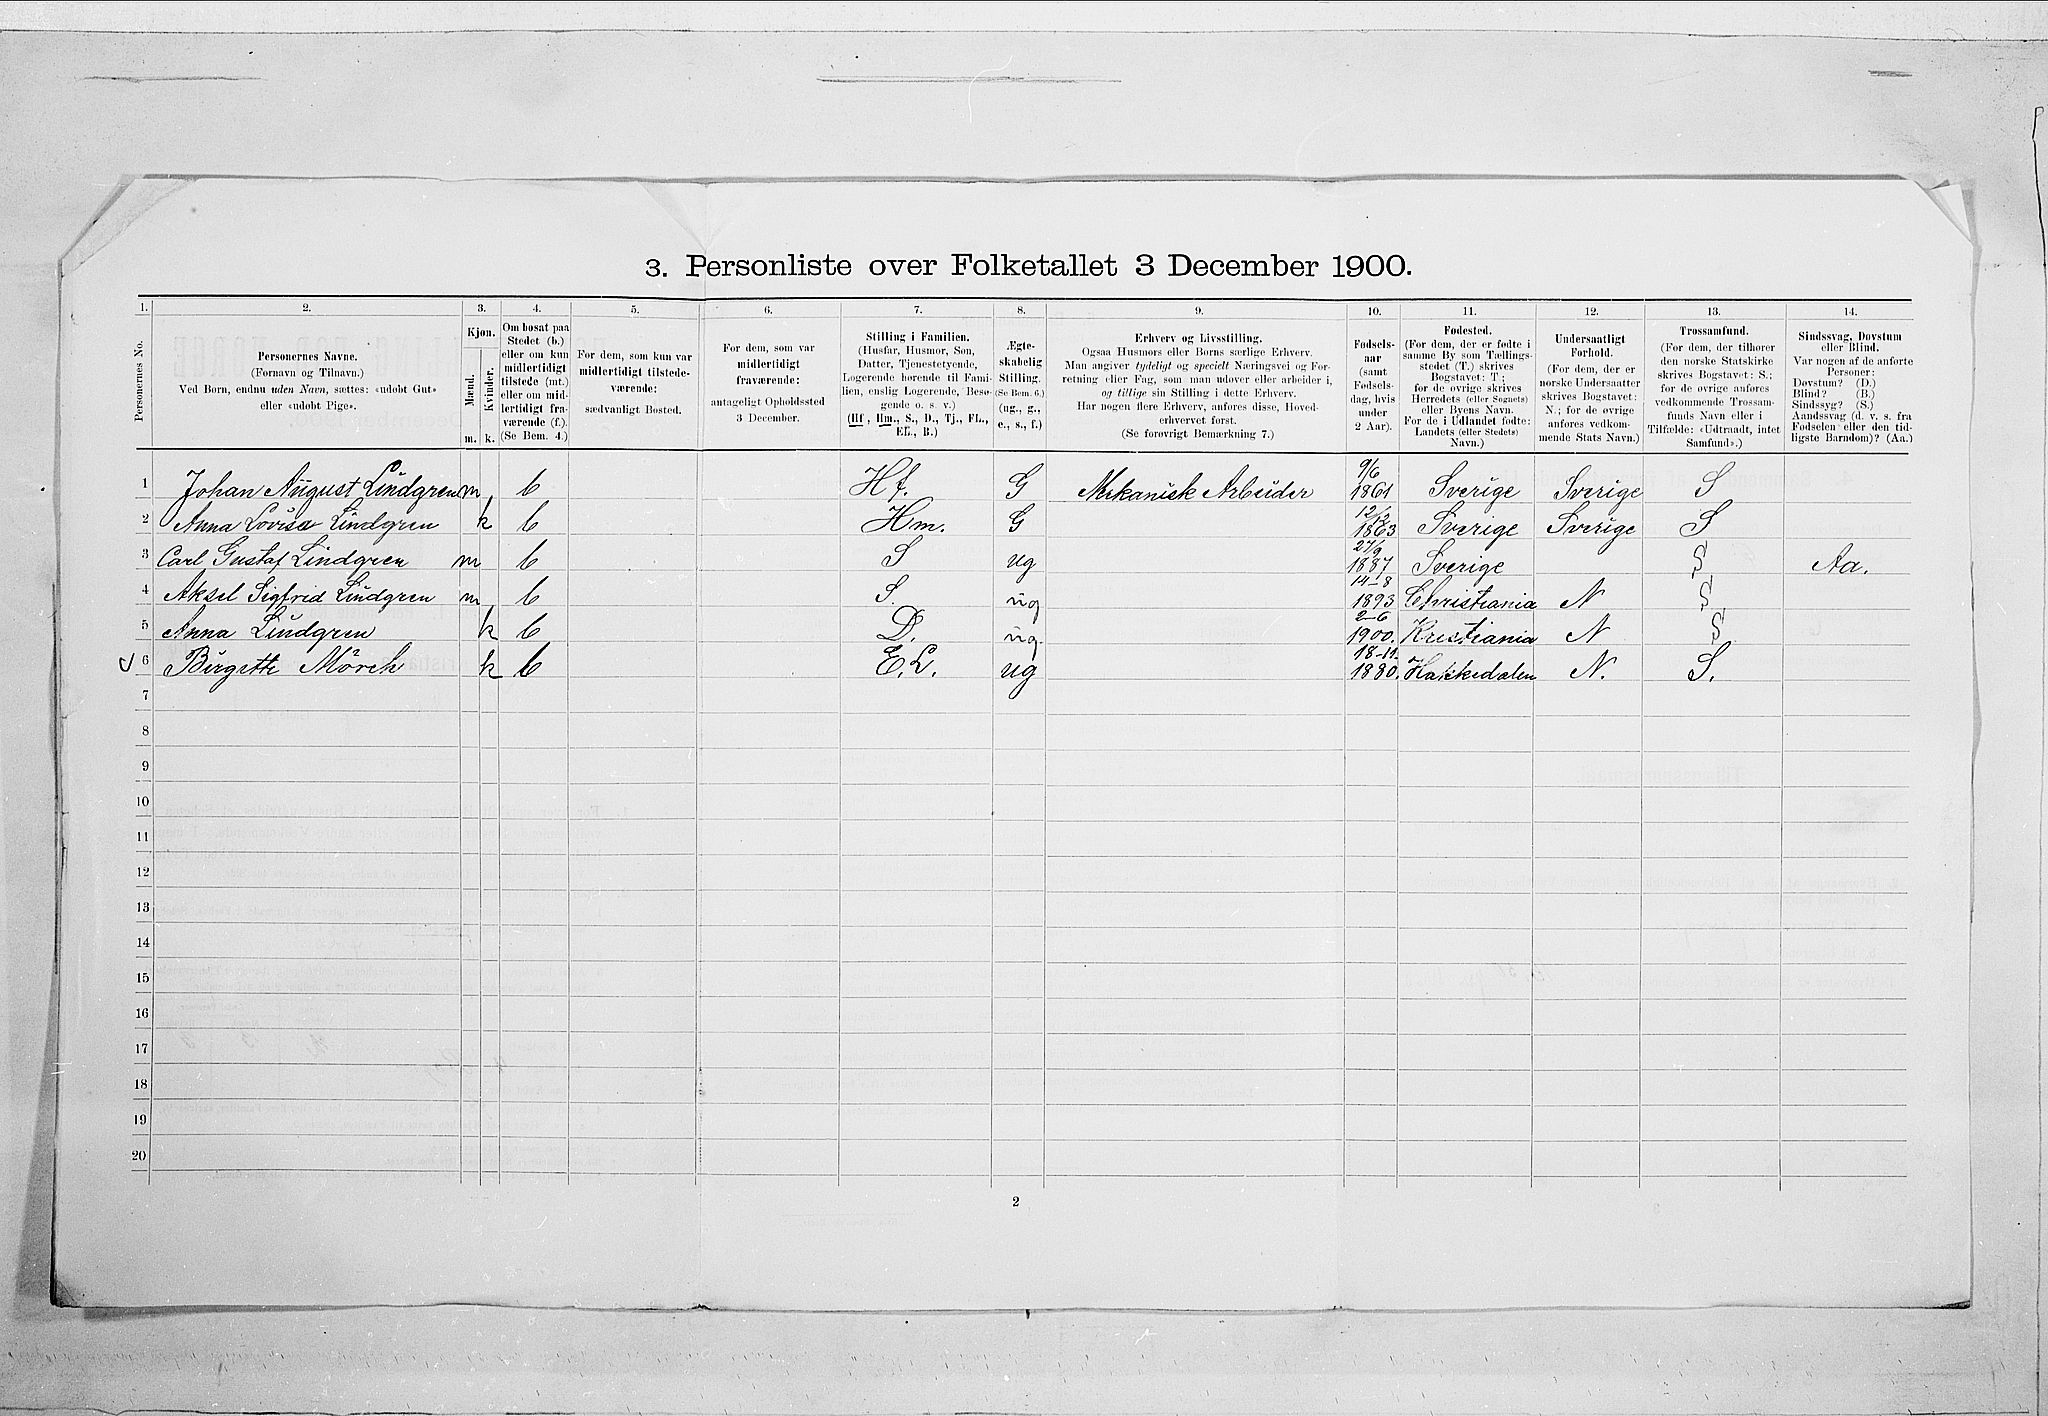 3. Personliste over Folketallet 3 December 1900.
1. 2. 3. 4. 5. 6. 7. 8. 9. 10. 11. 12. 13. 14.
Personernes No.
Personernes Navne.
(Fornavn og Tilnavn.)
Ved Børn, endnu uden Navn, sættes: «udøbt Gut»
eller «udøbt Pige».
Kjøn.
Mænd.
Kvinder.
m. k.
Om bosat paa
Stedet (b.)
eller om kun
midlertidigt
tilstede (mt.)
eller om mid-
lertidigt fra-
værende (f.).
(Se Bem. 4.)
For dem, som kun var
midlertidigt tilstede-
værende:
sædvanligt Bosted.
For dem, som var
midlertidigt
fraværende:
antageligt Opholdssted
3 December.
Stilling i Familien.
(Husfar, Husmor, Søn,
Datter, Tjenestetyende,
Logerende hørende til Fami-
lien, enslig Logerende, Besø-
gende o. s. v.)
(Hf., Hm., S., D., Tj., FL.,
EL., B.)
Ægte-
skabelig
Stilling.
(Se Bem. 6.)
(ug., g.,
e., s., f.)
Erhverv og Livsstilling.
Ogsaa Husmors eller Børns særlige Erhverv.
Man angiver tydeligt og specielt Næringsvei og For-
retning eller Fag, som man udøver eller arbeider i,
og tillige sin Stilling i dette Erhverv.
Har nogen flere Erhverv, anføres disse, Hoved-
erhvervet først.
(Se forøvrigt Bemærkning 7.)
Fødsels-
aar
(samt
Fødsels-
dag, hvis
under
2 Aar).
Fødested.
(For dem, der er fødte i
samme By som Tællings-
stedet (T.) skrives
Bogstavet: T;
for de øvrige skrives
Herredets (eller Sognets)
eller Byens Navn.
For de i Udlandet fødte:
Landets (eller Stedets)
Navn.)
Undersaatligt
Forhold.
(For dem, der er
norske Undersaatter
skrives Bogstavet:
N.; for de øvrige
anføres vedkom-
mende Stats Navn.)
Trossamfund.
(For dem, der tilhører
den norske Statskirke
skrives Bogstavet: S.;
for de øvrige anføres
vedkommende Trossam-
funds Navn eller i
Tilfælde: «Udtraadt, intet
Samfund».)
Sindssvag, Døvstum
eller Blind.
Var nogen af de anførte
Personer:
Døvstum? (D.)
Blind? (B.)
Sindssyg? (S.)
Aandssvag (d. v. s. fra
Fødselen eller den tid-
ligste Barndom)? (Aa.)
1 Johan August Lindgren m b Hf. G Mekanisk Arbeider 9/6 1861 Sverige Sverige S
2 Anna Lovise Lindgren k b Hm. G 12/12 1863 Sverige Sverige S
3 Carl Gustaf Lindgren m b S ug 27/9 1887 Sverige S Aa.
4 Aksel Sigfrid Lindgren m b S. ug 14-8 1893 Christiania N S
5 Anna Lindgren k b D. ug. 2-6 1900. Kristiania N S
6 Birgitte Mörch k b E.L. ug 18-11 1880. Hakkedalen N. S.
7
8
9
10
11
12
13
14
15
16
17
18
19
20
2